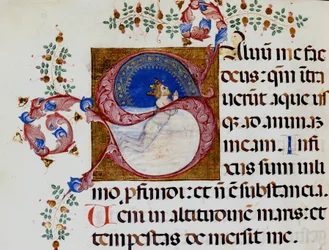 Saluum me fac
deus: qm̄ intra
uerunt aque us
qz ad animaz
meam. Infi
xus sum in li
mo pfundi: et n̄ ē substancia.
Ueni in altitudinē maris: et
tempestas de mersit me.